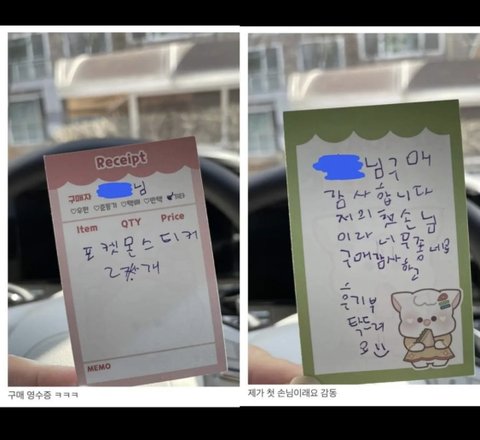 Receipt
구매자 님
♡우편 ♡준등기 ♡택배 ♡반택 ♡기타
Item QTY Price
포켓몬스티커
2개
MEMO
구매 영수증 ㅋㅋㅋ
님 구매
감사합니다
저의 첫손님
이라 너무 좋네요
구매감사하고
후기부
탁드려
요
제가 첫 손님이래요 감동